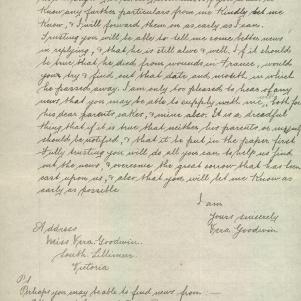 Know any further particulars from me Kindly let me
Know, & I will forward them on as early as I can.
Trusting you will be able to tell me some better news
in replying, & that he is still alive & well. If it should
be true that he died from wounds in France, would
you try & find out that date and month in which
he passed away. I am only too pleased to hear of any
news that you may be able to supply with me, both for
his dear parents sakes, & mine also. It is a dreadful
thing that if it is true that neither his parents or myself
should be notified, & that it be put in the paper first
Fully trusting you will do all you can to help us find
out the news, & overcome the great sorrow that has been
cast upon us, & also that you will let me Know as
early as possible
I am
Yours sincerely
Vera Goodwin
Address
Miss Vera Goodwin.
South Lillimur
Victoria
P.S
Perhaps you may be able to find news from :-